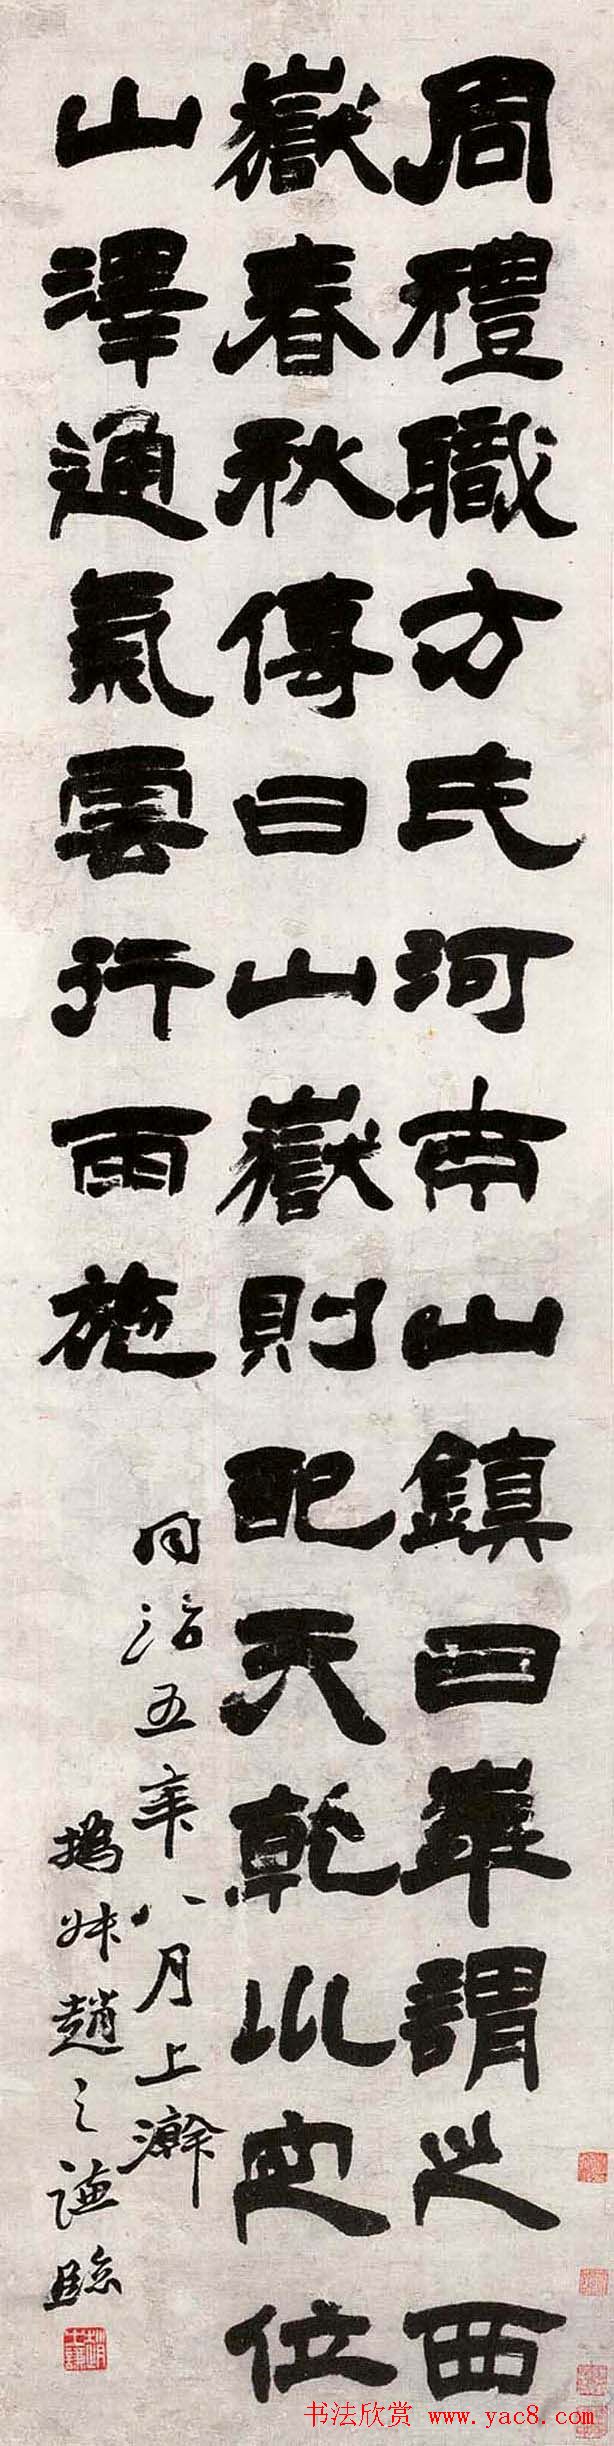 周禮職方氏河南山鎮曰華謂之西
嶽春秋傳曰山嶽則配天乾以定位
山澤通氣雲行雨施
同治五年八月上澣
撝叔趙之謙臨
书法欣赏 www.yac8.com